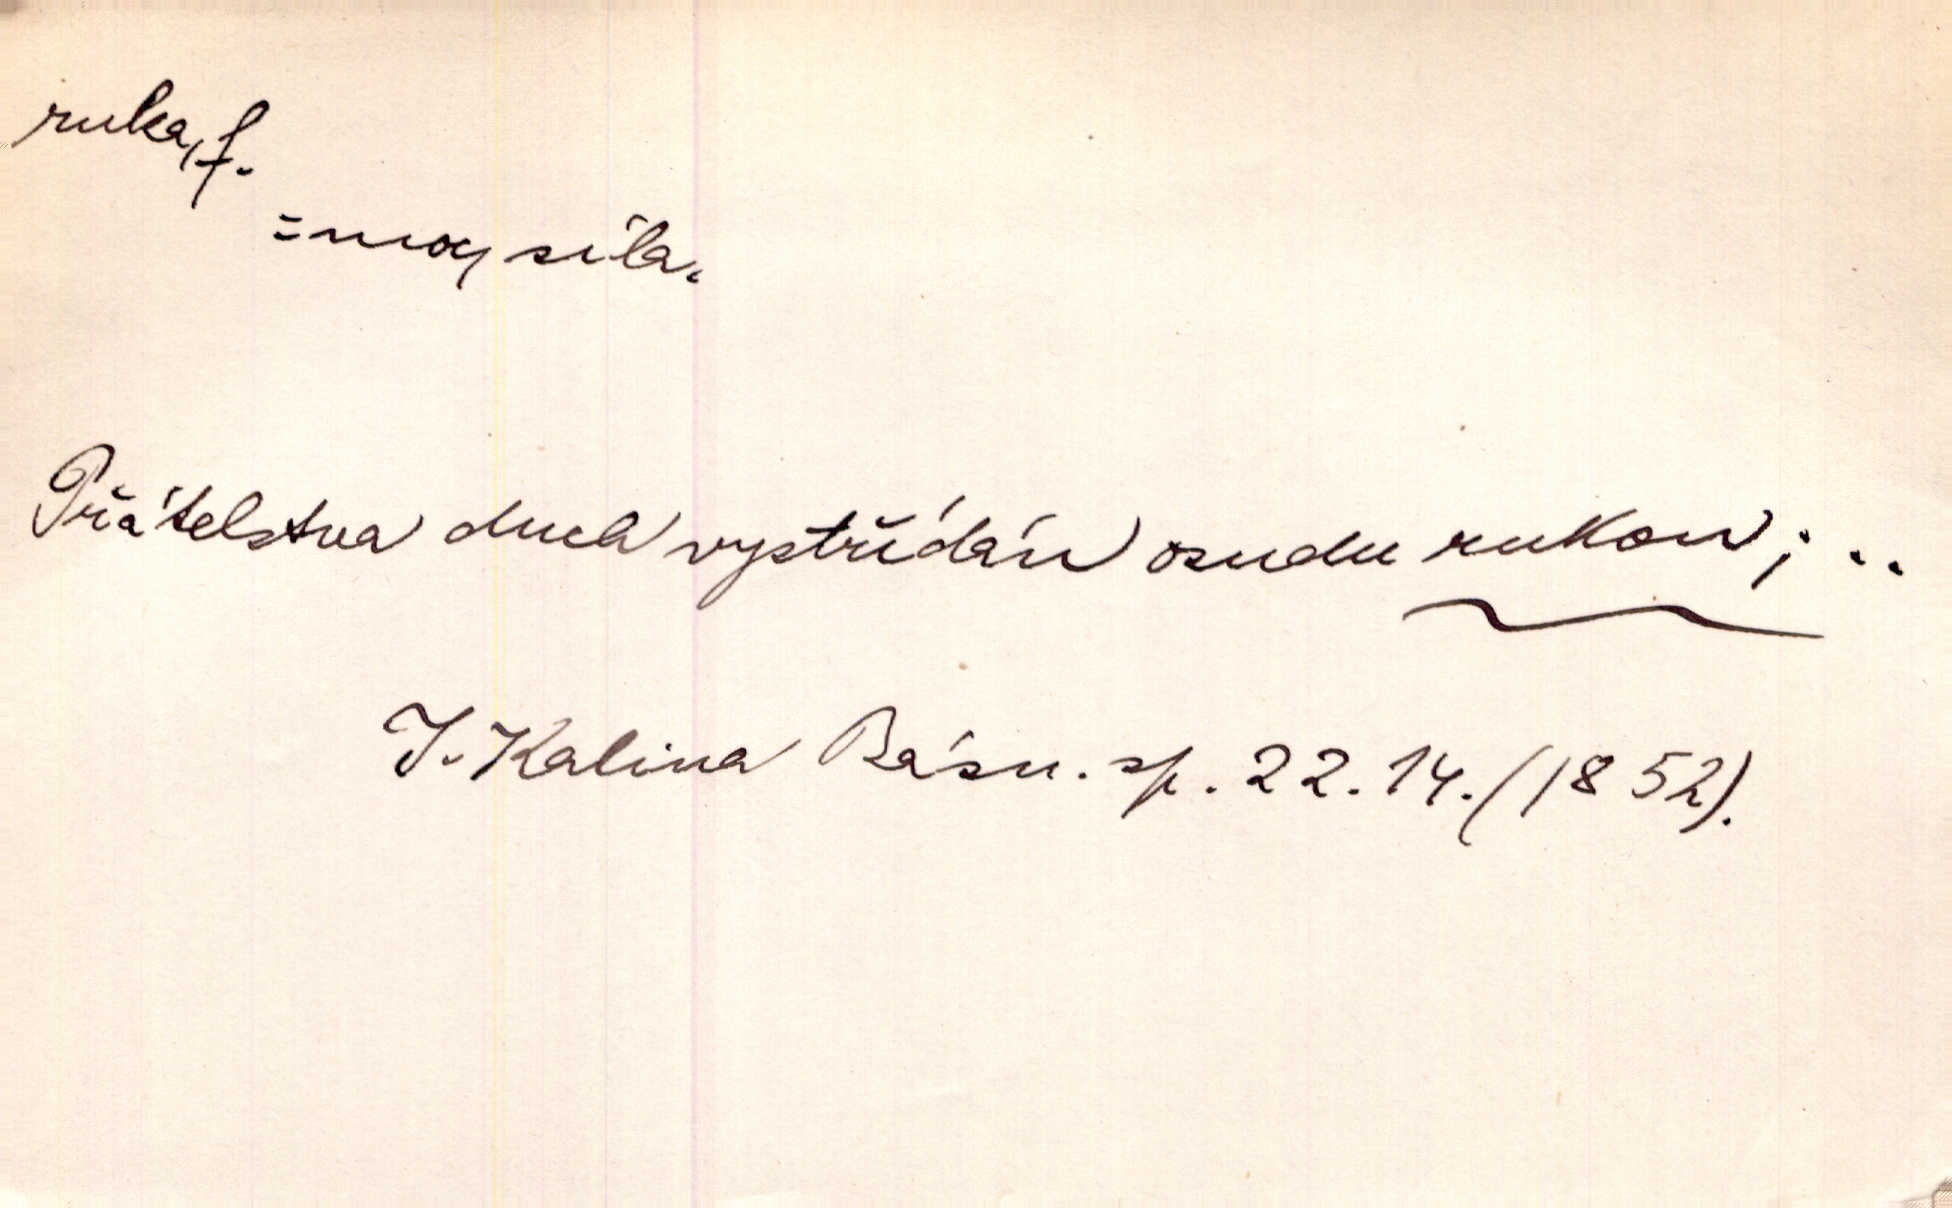 ruka, f.
= moc, síla.
Přátelstva duch vystřídán osudu rukou; ..
J. Kalina Básn. sp. 22. 14. (1852).